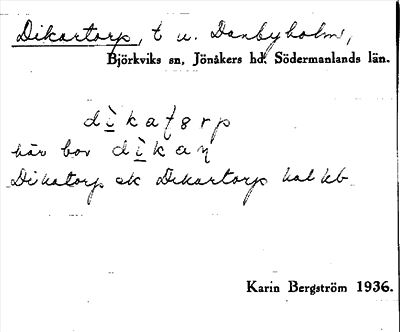 Dikartorp, t u. Danbyholm,
Björkviks sn, Jönåkers hd, Södermanlands län.
dìkatorp
här bor dìkaη
Dikatorp ek Dikartorp hal kb
Karin Bergström 1936.